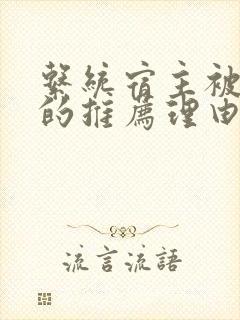 繫統宿主被
的推薦理由
流言流語